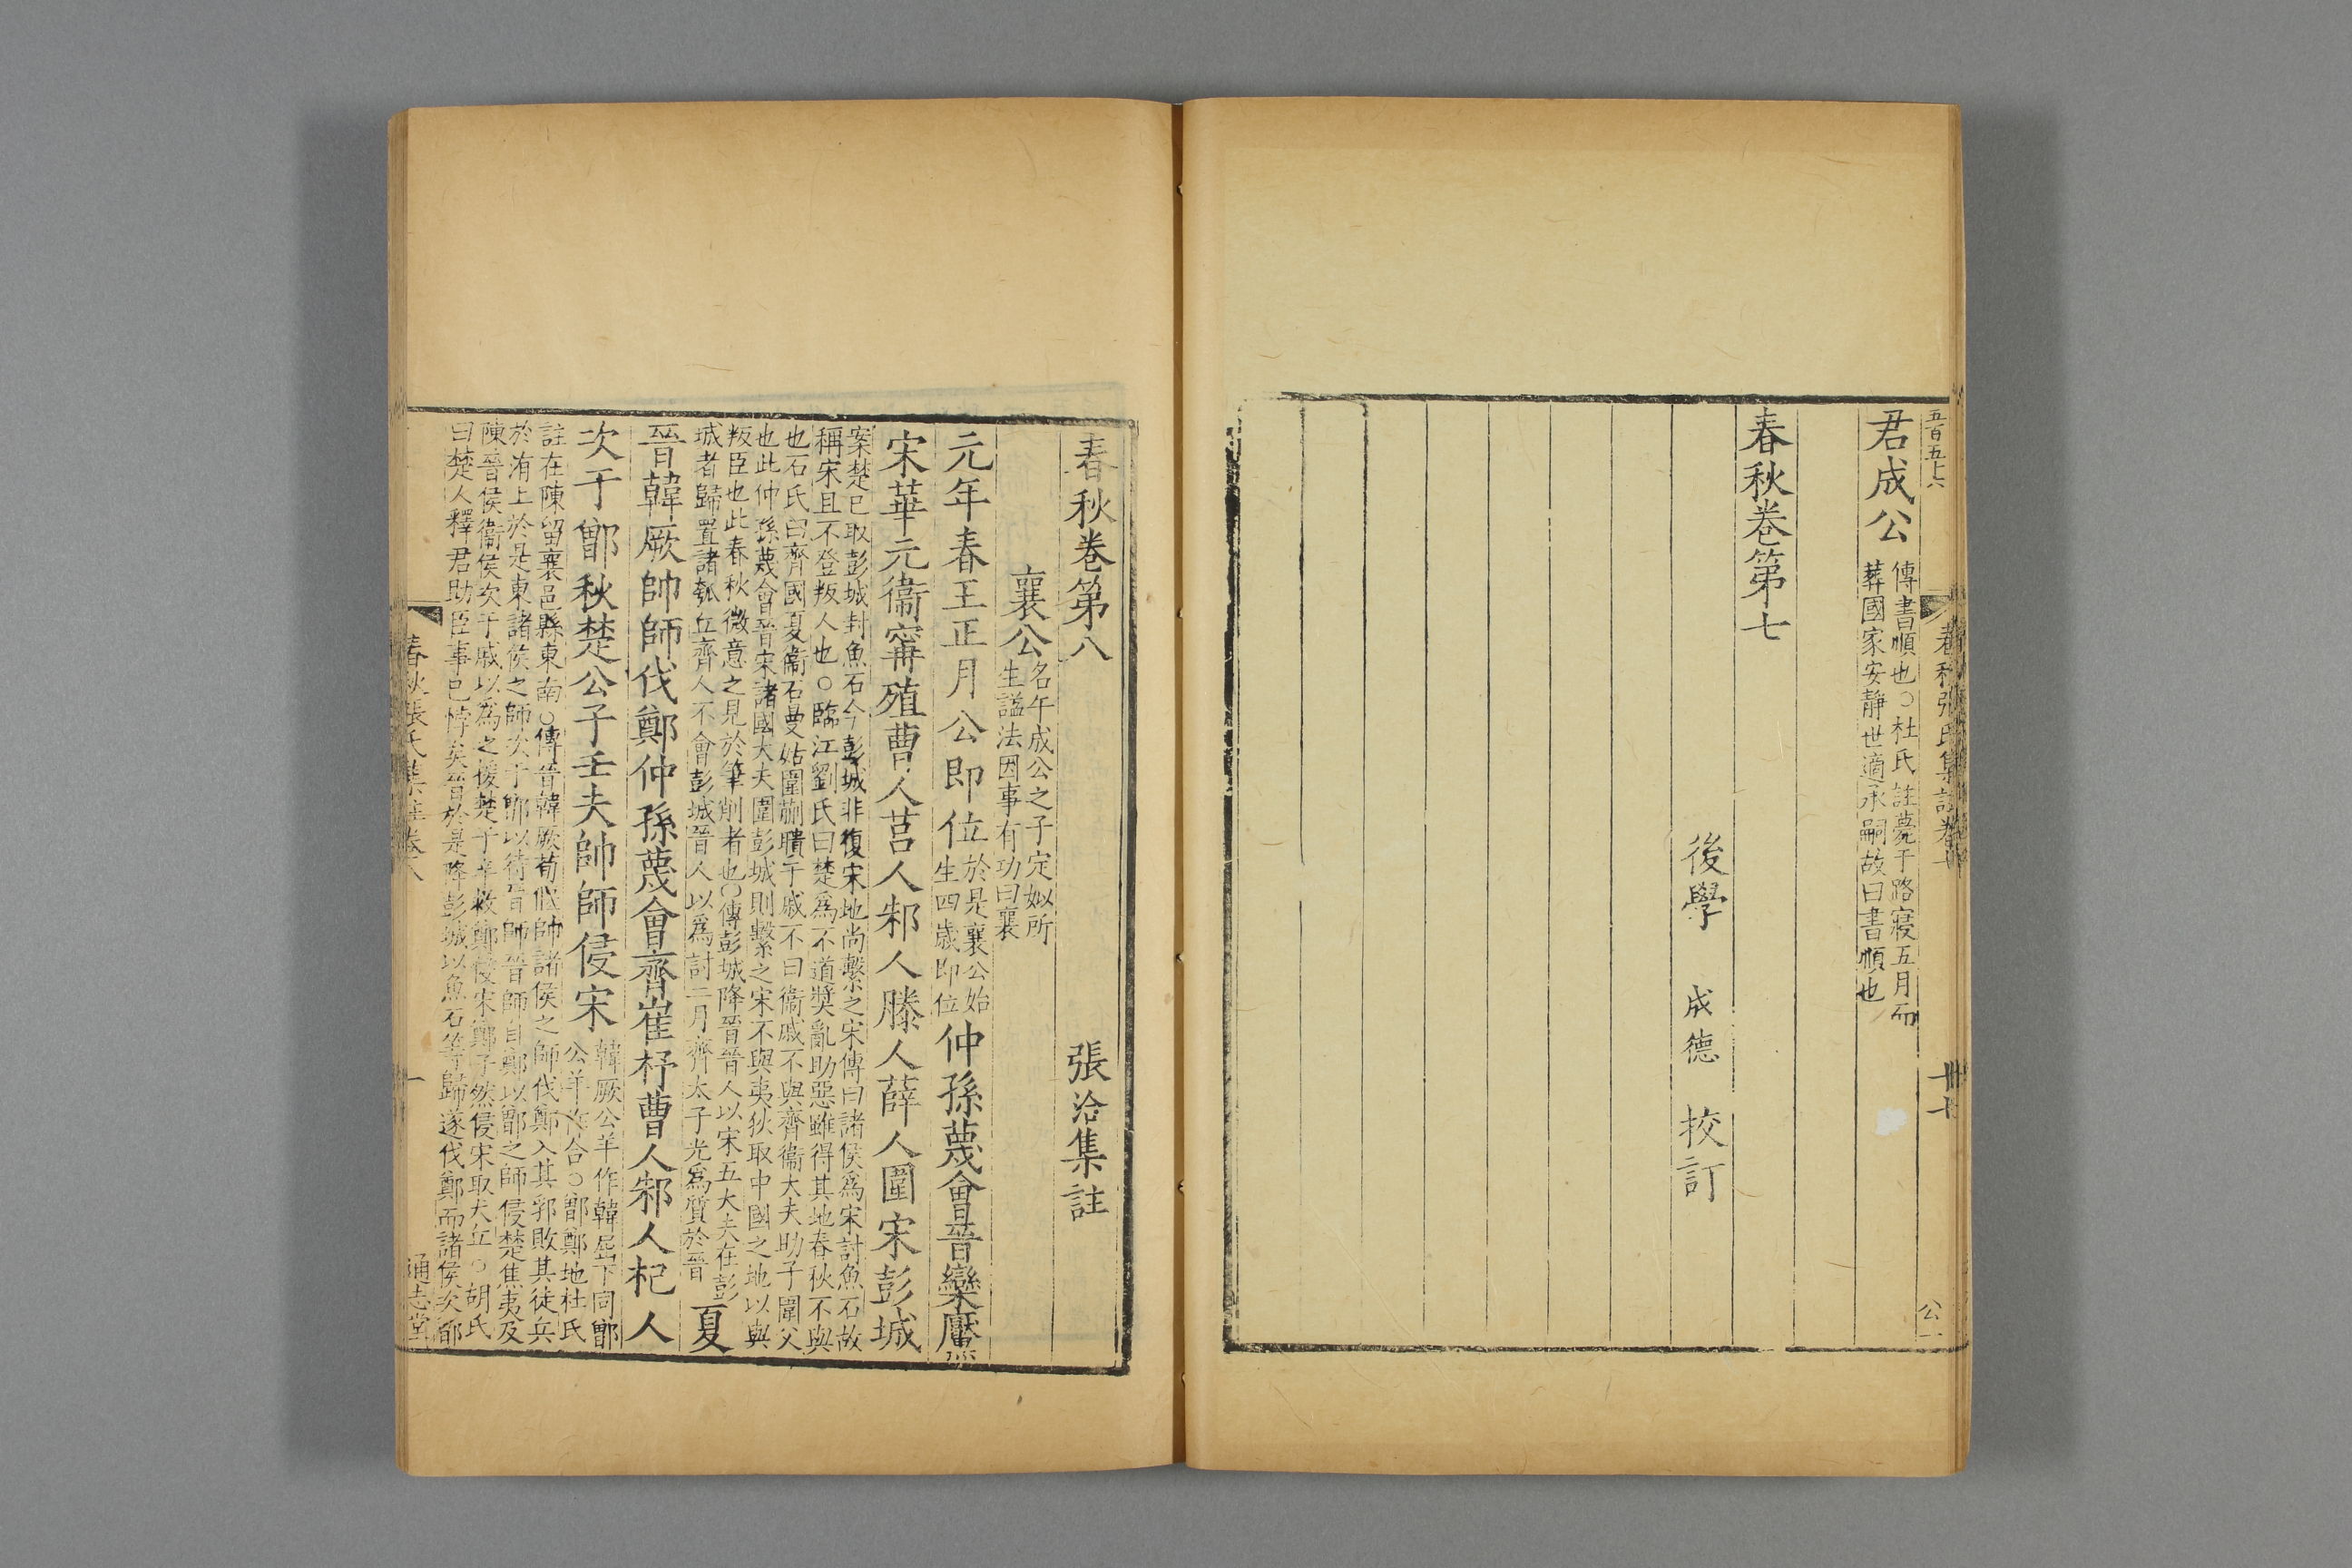 五百五十六
君成公
傳書順也○杜氏註薨于路寢五月而
葬國家安靜世適承嗣故曰書順也
春秋卷第七
後學 成德 校訂
春秋張氏集註卷七
卅七
公一
春秋卷第八
張洽集註
襄公
名午成公之子定姒所
生諡法因事有功曰襄
元年春王正月公即位
於是襄公始
生四歲即位
仲孫蔑會晉欒黶
宋華元衞甯殖曹人莒人邾人滕人薛人圍宋彭城
案楚已取彭城封魚石今彭城非復宋地尚繫之宋傳曰諸侯爲宋討魚石故
稱宋且不登叛人也○臨江劉氏曰楚爲不道獎亂助惡雖得其地春秋不與
也石氏曰齊國夏衞石曼姑圍蒯聵于戚不曰衞戚不與齊衞大夫助子圍父
也此仲孫蔑會晉宋諸國大夫圍彭城則繫之宋不與夷狄取中國之地以與
叛臣也此春秋微意之見於筆削者也○傳彭城降晉晉人以宋五大夫在彭
城者歸置諸瓠丘齊人不會彭城晉人以爲討二月齊太子光爲質於晉
夏
晉韓厥帥師伐鄭仲孫蔑會齊崔杼曹人邾人杞人
次于鄫秋楚公子壬夫帥師侵宋
韓厥公羊作韓屈下同鄫
公羊作合○鄫鄭地杜氏
註在陳留襄邑縣東南○傳晉韓厥荀偃帥諸侯之師伐鄭入其郛敗其徒兵
於洧上於是東諸侯之師次于鄫以待晉師晉師自鄭以鄫之師侵楚焦夷及
陳晉侯衞侯次于戚以爲之援楚子辛救鄭侵宋鄭子然侵宋取犬丘○胡氏
曰楚人釋君助臣事已悖矣晉於是降彭城以魚石等歸遂伐鄭而諸侯次鄫
春秋張氏集註卷八
一
通志堂